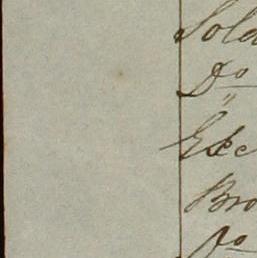 Sold
Do
"
Exc
Bro
Do